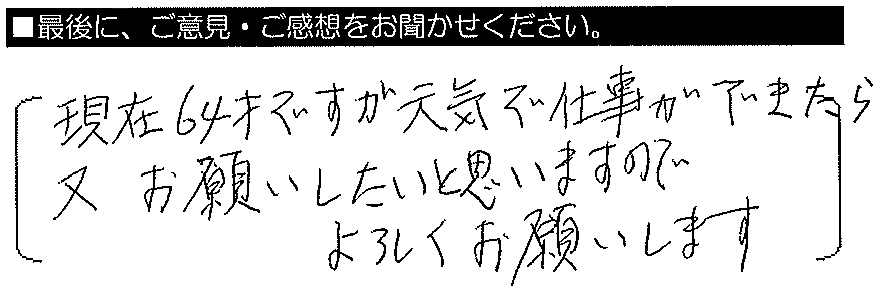 ■最後に、ご意見・ご感想をお聞かせください。
現在64才ですが元気で仕事ができたら
又 お願いしたいと思いますので
よろしくお願いします